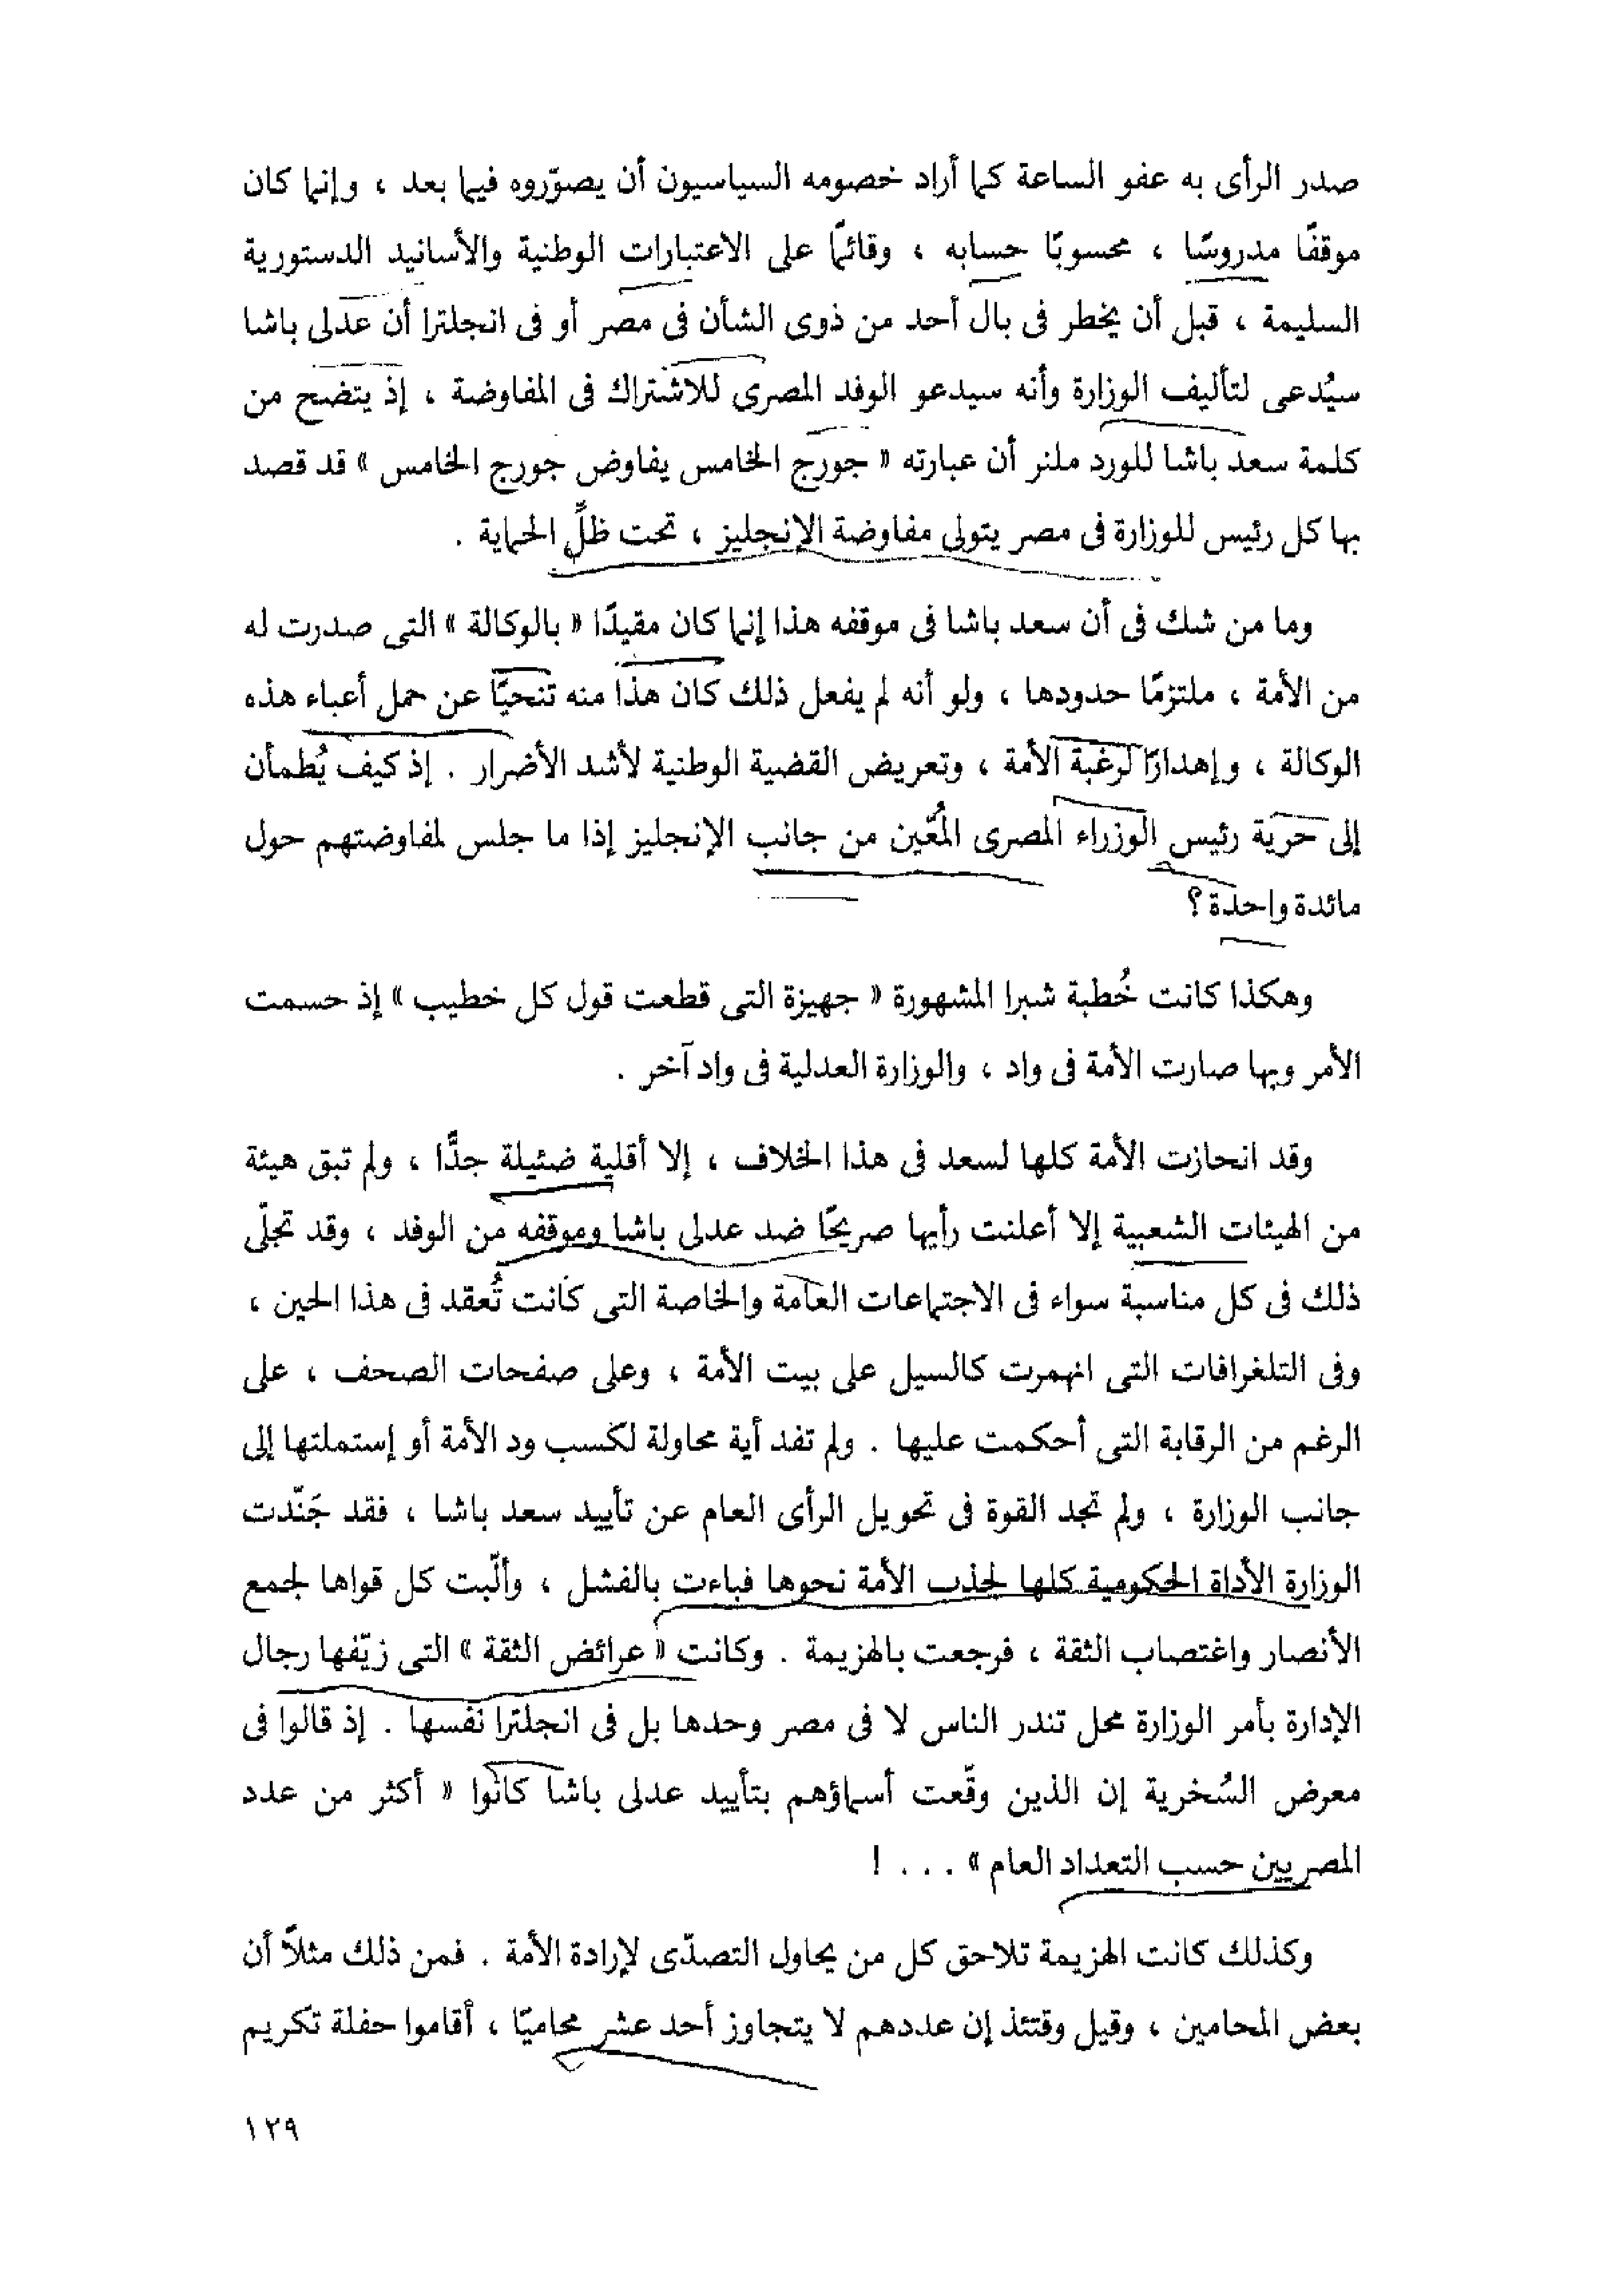 صدر الرأى به عفو الساعة كما أراد خصومه السياسيون أن يصوّروه فيما بعد ، وإنما كان
موقفًا مدروسًا ، محسوبًا حسابه ، وقائمًا على الاعتبارات الوطنية والأسانيد الدستورية
السليمة ، قبل أن يخطر فى بال أحد من ذوى الشأن فى مصر أو فى انجلترا أن عدلى باشا
سيُدعى لتأليف الوزارة وأنه سيدعو الوفد المصرى للاشتراك فى المفاوضة ، إذ يتضح من
كلمة سعد باشا للورد ملنر أن عبارته « جورج الخامس يفاوض جورج الخامس » قد قصد
بها كل رئيس للوزارة فى مصر يتولى مفاوضة الإنجليز ، تحت ظلِّ الحماية .
وما من شك فى أن سعد باشا فى موقفه هذا إنما كان مقيدًا « بالوكالة » التى صدرت له
من الأمة ، ملتزمًا حدودها ، ولو أنه لم يفعل ذلك كان هذا منه تنحيًّا عن حمل أعباء هذه
الوكالة ، وإهدارًا لرغبة الأمة ، وتعريض القضية الوطنية لأشد الأضرار . إذ كيف يُطمأن
إلى حرية رئيس الوزراء المصرى المُعّين من جانب الإنجليز إذا ما جلس لمفاوضتهم حول
مائدة واحدة ؟
وهكذا كانت خُطبة شبرا المشهورة « جهيزة التى قطعت قول كل خطيب » إذ حسمت
الأمر وبها صارت الأمة فى واد ، والوزارة العدلية فى واد آخر .
وقد انحازت الأمة كلها لسعد فى هذا الخلاف ، إلا أقلية ضئيلة جدًّا ، ولم تبق هيئة
من الهيئات الشعبية إلا أعلنت رأيها صريحًا ضد عدلى باشا وموقفه من الوفد ، وقد تجلّى
ذلك فى كل مناسبة سواء فى الاجتماعات العامة والخاصة التى كانت تُعقد فى هذا الحين ،
وفى التلغرافات التى انهمرت كالسيل على بيت الأمة ، وعلى صفحات الصحف ، على
الرغم من الرقابة التى أحكمت عليها . ولم تفد أية محاولة لكسب ود الأمة أو إستملتها إلى
جانب الوزارة ، ولم تجد القوة فى تحويل الرأى العام عن تأييد سعد باشا ، فقد جَنّدت
الوزارة الأداة الحكومية كلها لجذب الأمة نحوها فباءت بالفشل ، وألّبت كل قواها لجمع
الأنصار واغتصاب الثقة ، فرجعت بالهزيمة . وكانت « عرائض الثقة » التى زيّفها رجال
الإدارة بأمر الوزارة محل تندر الناس لا فى مصر وحدها بل فى انجلترا نفسها . إذ قالوا فى
معرض السُخرية إن الذين وقّعت أسماؤهم بتأييد عدلى باشا كانوا « أكثر من عدد
المصريين حسب التعداد العام » . . . !
وكذلك كانت الهزيمة تلاحق كل من يحاول التصدّى لإرادة الأمة . فمن ذلك مثلاً أن
بعض المحامين ، وقيل وقتئذ إن عددهم لا يتجاوز أحد عشر محاميًا ، أقاموا حفلة تكريم
١٢٩